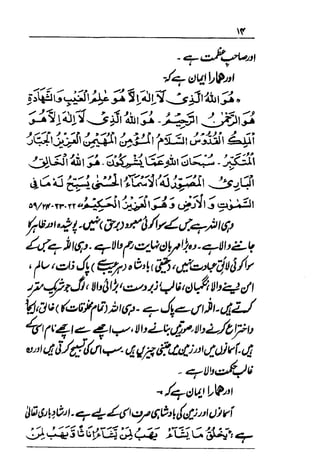 ۱۴
اور صاحبِ عظمت ہے۔
اور ہمارا ایمان ہے کہ:
هُوَ اللهُ الَّذِىْ لَآ اِلٰهَ اِلَّا هُوَ عٰلِمُ الْغَيْبِ وَالشَّهَادَةِ
هُوَ الرَّحْمٰنُ الرَّحِيْمُ۔ هُوَ اللهُ الَّذِىْ لَآ اِلٰهَ اِلَّا هُوَ
اَلْمَلِكُ الْقُدُّوْسُ السَّلَامُ الْمُؤْمِنُ الْمُهَيْمِنُ الْعَزِيْزُ الْجَبَّارُ
الْمُتَكَبِّرُ۔ سُبْحَانَ اللهِ عَمَّا يُشْرِكُوْنَ۔ هُوَ اللهُ الْخَالِقُ
الْبَارِئُ الْمُصَوِّرُ لَهُ الْاَسْمَآءُ الْحُسْنٰى يُسَبِّحُ لَهٗ مَا فِى
السَّمٰوٰتِ وَ الْاَرْضِ وَ هُوَ الْعَزِيْزُ الْحَكِيْمُ ۲۲-۲۳-۲۴/۵۹
وہی اللہ ہے جس کے سوا کوئی معبود (برحق) نہیں۔ پوشیدہ اور ظاہر کا
جاننے والا ہے۔ وہ بڑا مہربان نہایت رحم والا ہے۔ وہی اللہ ہے جس کے
سوا کوئی لائقِ عبادت نہیں، بادشاہ پاک ذات، سالم،
امن دینے والا، نگہبان، غالب زبردست، بڑائی والا، لوگ جو شریک مقرر
کرتے ہیں۔ اللہ اس سے پاک ہے۔ وہی اللہ (تمام مخلوقات کا) خالق، ایجاد
و اختراع کرنے والا، صورتیں بنانے والا، سب اچھے سے اچھے نام اسی کے
ہیں۔ آسمانوں میں اور زمین میں جتنی چیزیں ہیں۔ سب اس کی تسبیح کرتی ہیں اور وہ
غالب حکمت والا ہے۔
اور ہمارا ایمان ہے کہ:
آسمانوں اور زمین کی بادشاہی صرف اسی کے لیے ہے۔ ارشاد باری تعالیٰ
ہے: يَخْلُقُ مَا يَشَآءُ يَهَبُ لِمَنْ يَّشَآءُ اِنَاثًا وَّيَهَبُ لِمَنْ